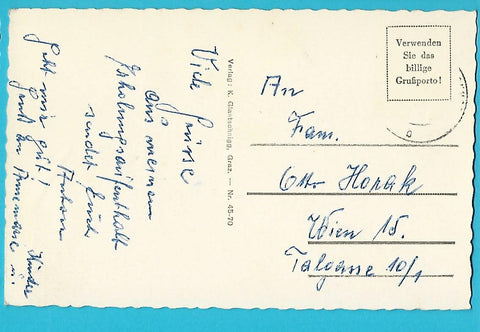 Viele Grüsse
aus meinem
Erholungsaufenthalt
sendet Euch
Anton
Geht mir gut!
Gruß an Annemarie u.
Kinder
Verlag: K. Glantschnigg, Graz. — Nr. 45-70
Verwenden
Sie das
billige
Grußporto!
An
Fam.
Otto Horak
Wien 15.
Talgasse 10/1